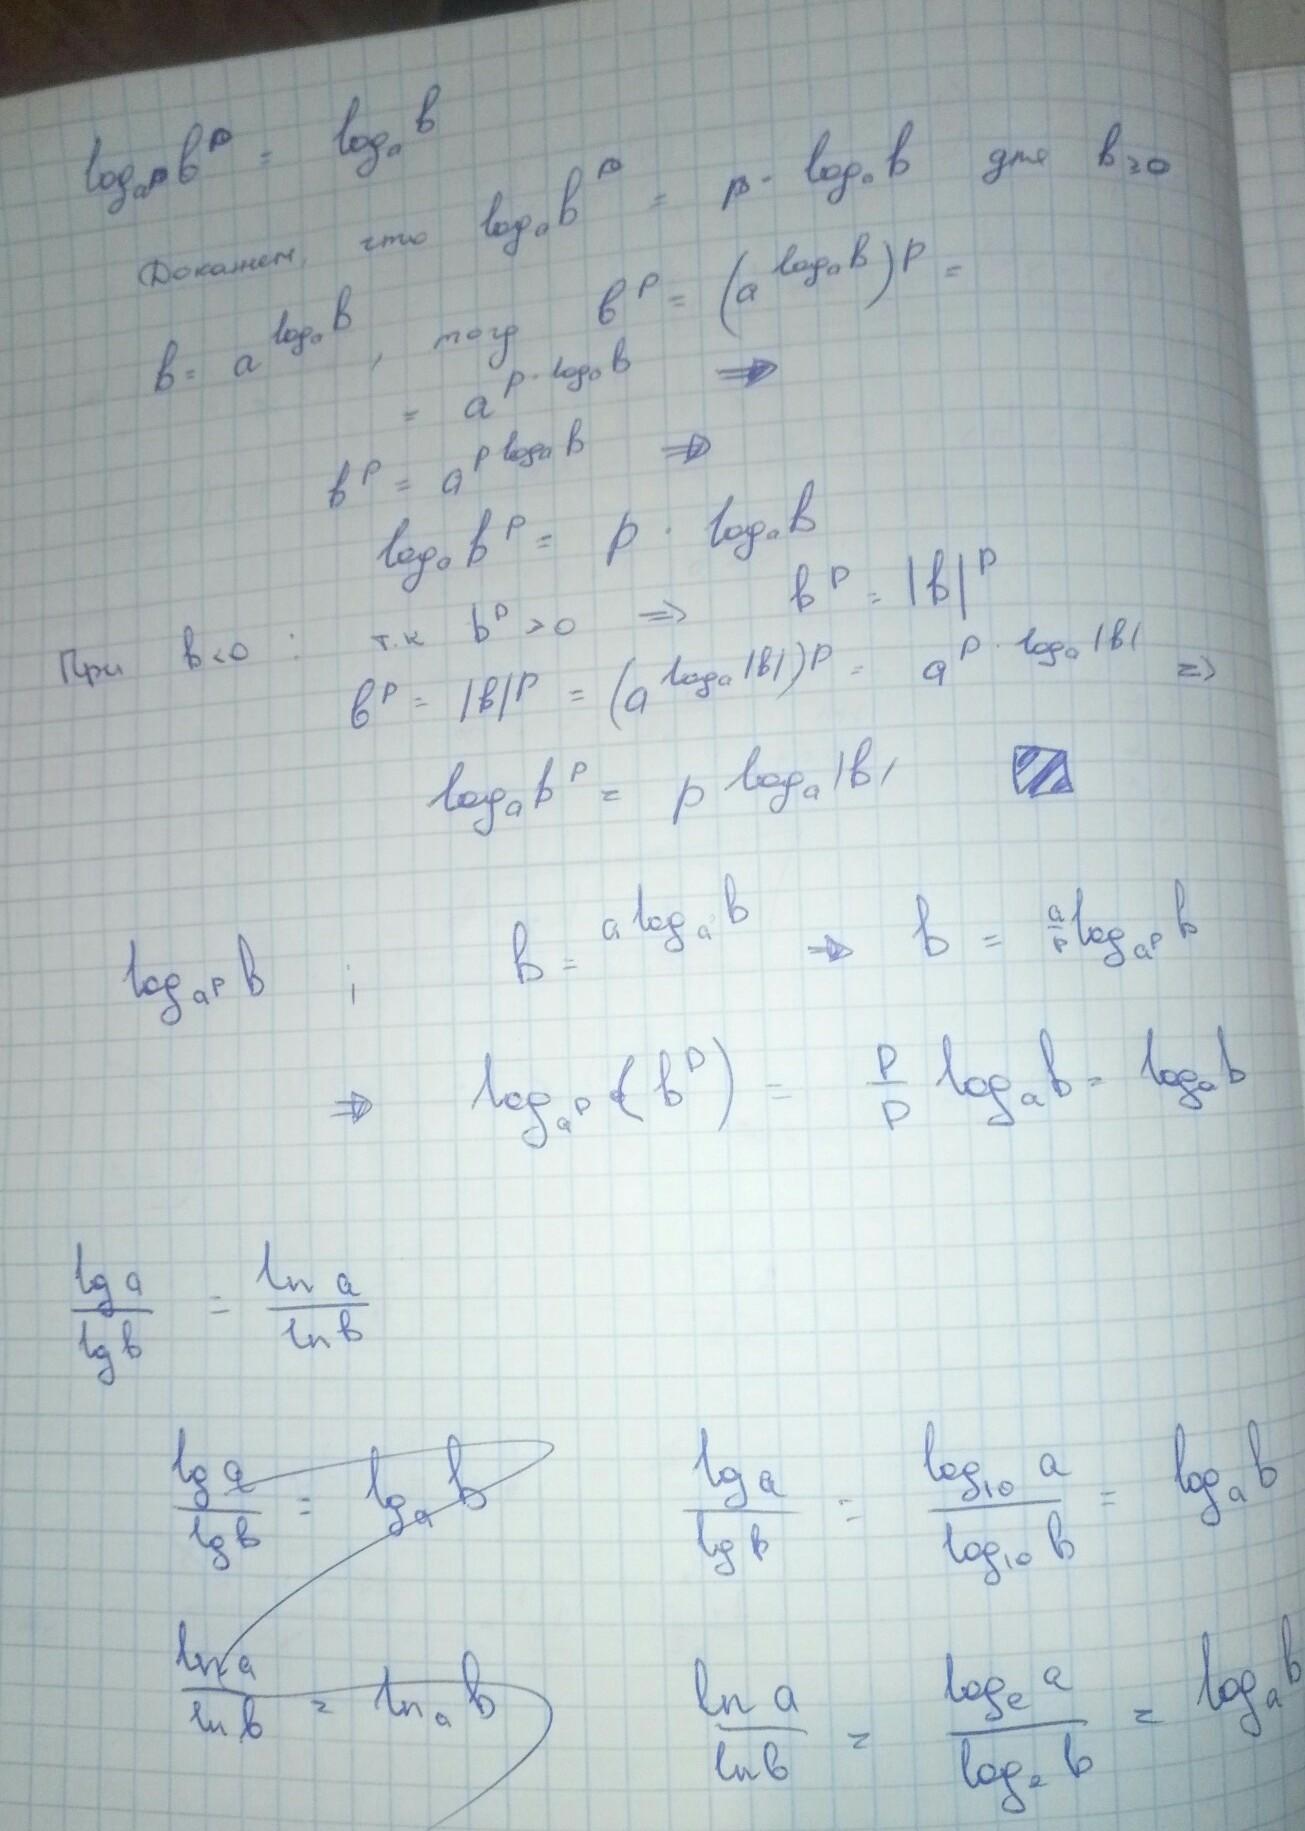 log_{a^p} b^p = log_a b
Докажем, что log_a b^p = p · log_a b для b≥0
b = a^{log_a b}, тогд b^p = (a^{log_a b})^p =
= a^{p · log_a b} ⇒
b^p = a^{p log_a b} ⇒
log_a b^p = p · log_a b
При b<0 : т.к b^p >0 ⇒ b^p = |b|^p
b^p = |b|^p = (a^{log_a |b|})^p = a^{p · log_a |b|} ⇒
log_a b^p = p log_a |b|
log_{a^p} b ; b = a^{log_a b} ⇒ b = \frac{a}{p} log_{a^p} b
⇒ log_{a^p} (b^p) = \frac{p}{p} log_a b = log_a b
\frac{lg a}{lg b} = \frac{ln a}{ln b}
\frac{lg a}{lg b} = lg_a b \frac{lg a}{lg b} = \frac{log_{10} a}{log_{10} b} = log_a b
\frac{ln a}{ln b} = ln_a b \frac{ln a}{ln b} = \frac{log_e a}{log_e b} = log_a b